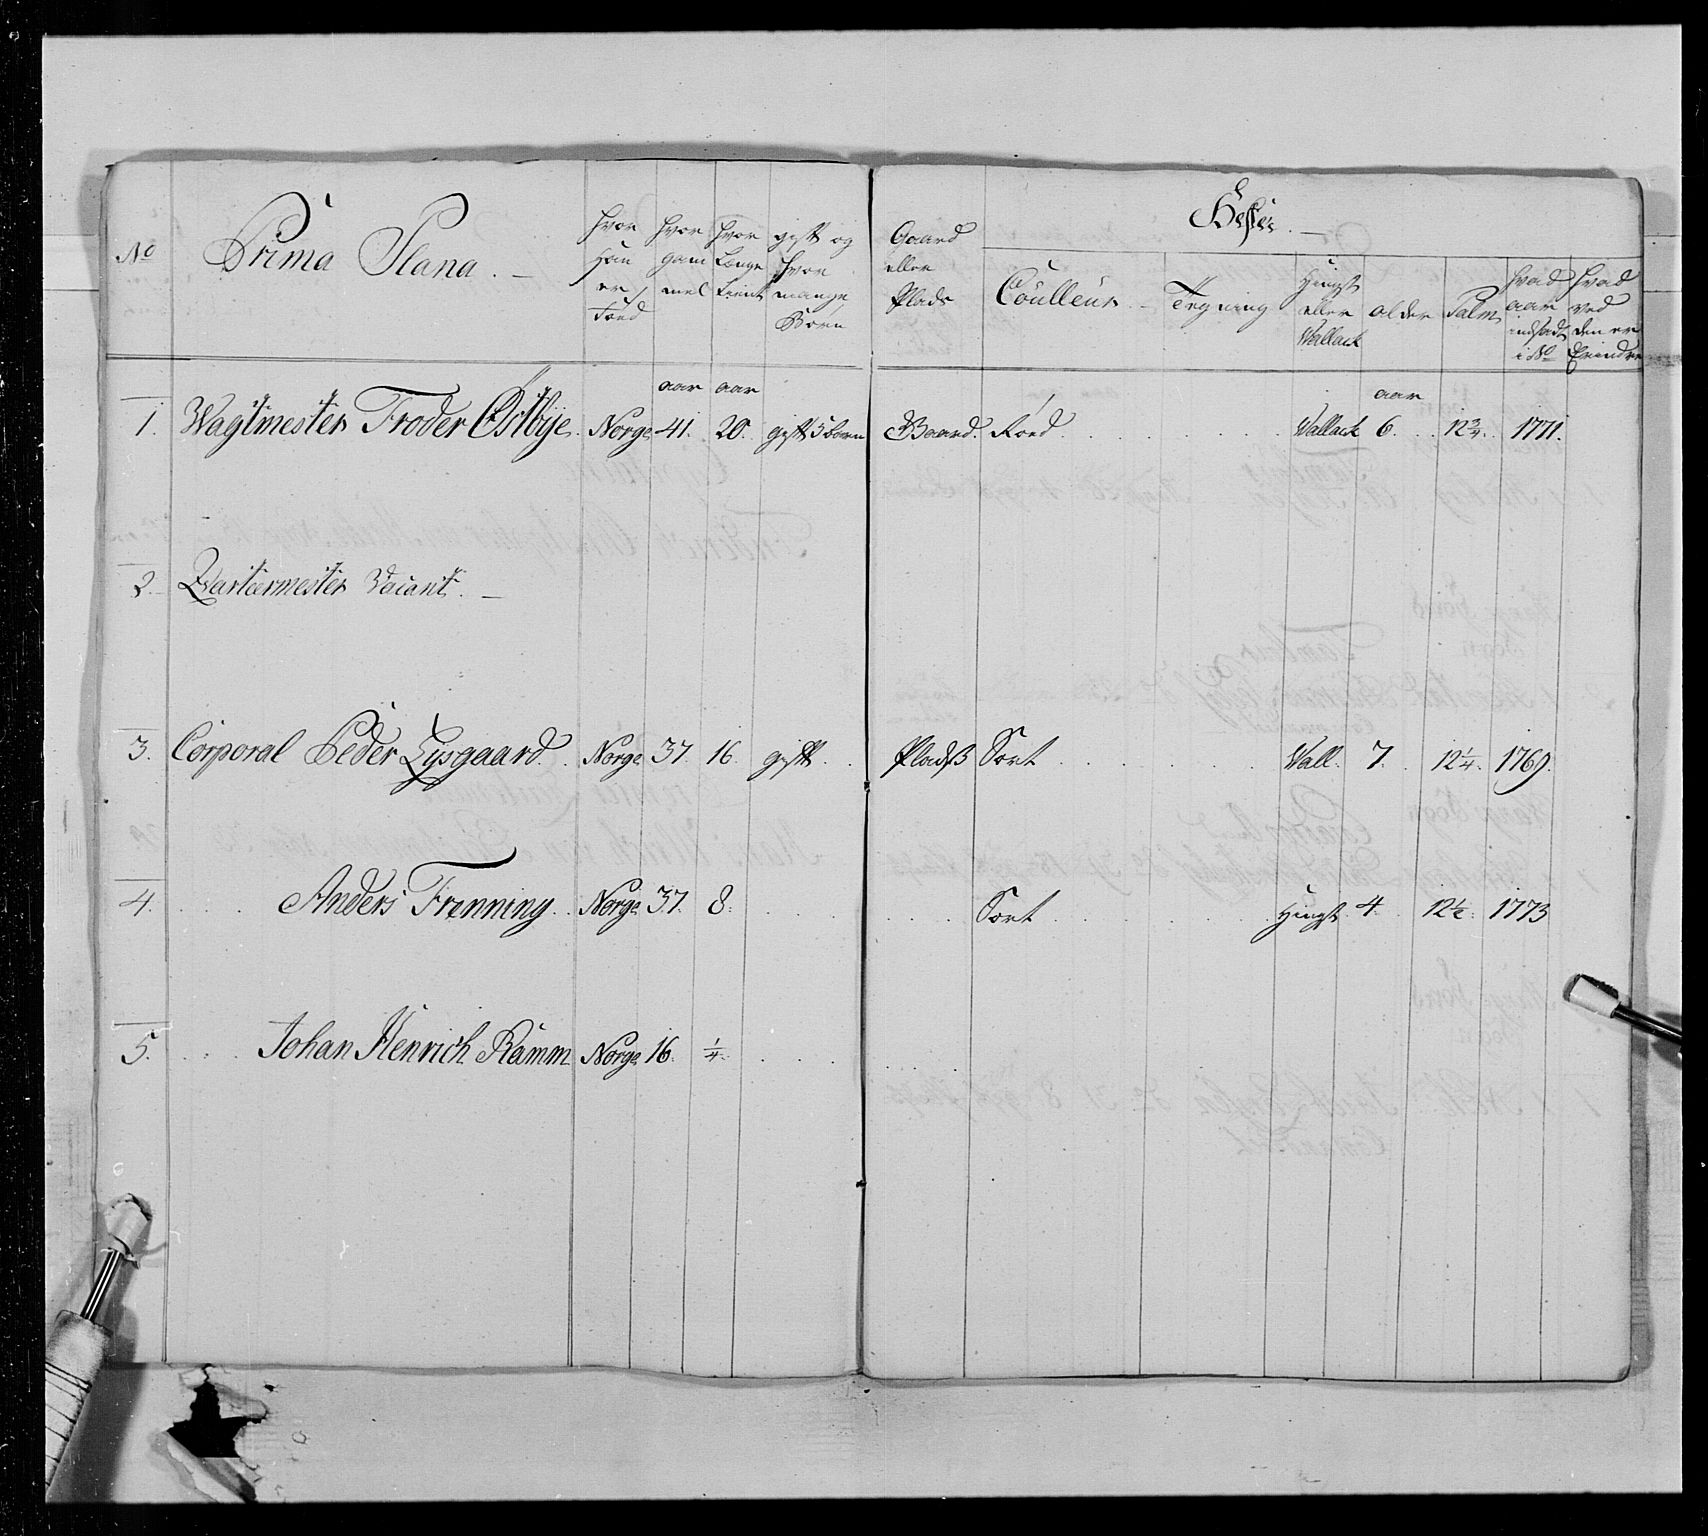 No Prima Plana. hvor Han er Föed hvor gam mel hvor Længe tient gift og hvor mange Börn Gaard eller Plads Hester.
Couleur. Tegning Hingst eller Wallack alder Palm hvad aar indsadt i No hvad ved den er Erindre
aar aar aar
1. Wagtmester Froder Östbye. Norge 41. 20. gift 3 börn Gaard. Röed Wallack 6. 12 3/4. 1771.
2. Qvartærmester Vacant.
3. Corporal Peder Lysgaard. Norge 37. 16. gift Pladß Sort Wall. 7. 12 1/4. 1769.
4. Anders Frenning. Norge 37. 8. Sort Hingst 4. 12 1/2. 1773
5. Johan Henrich Ramm Norge 16. 1/4.